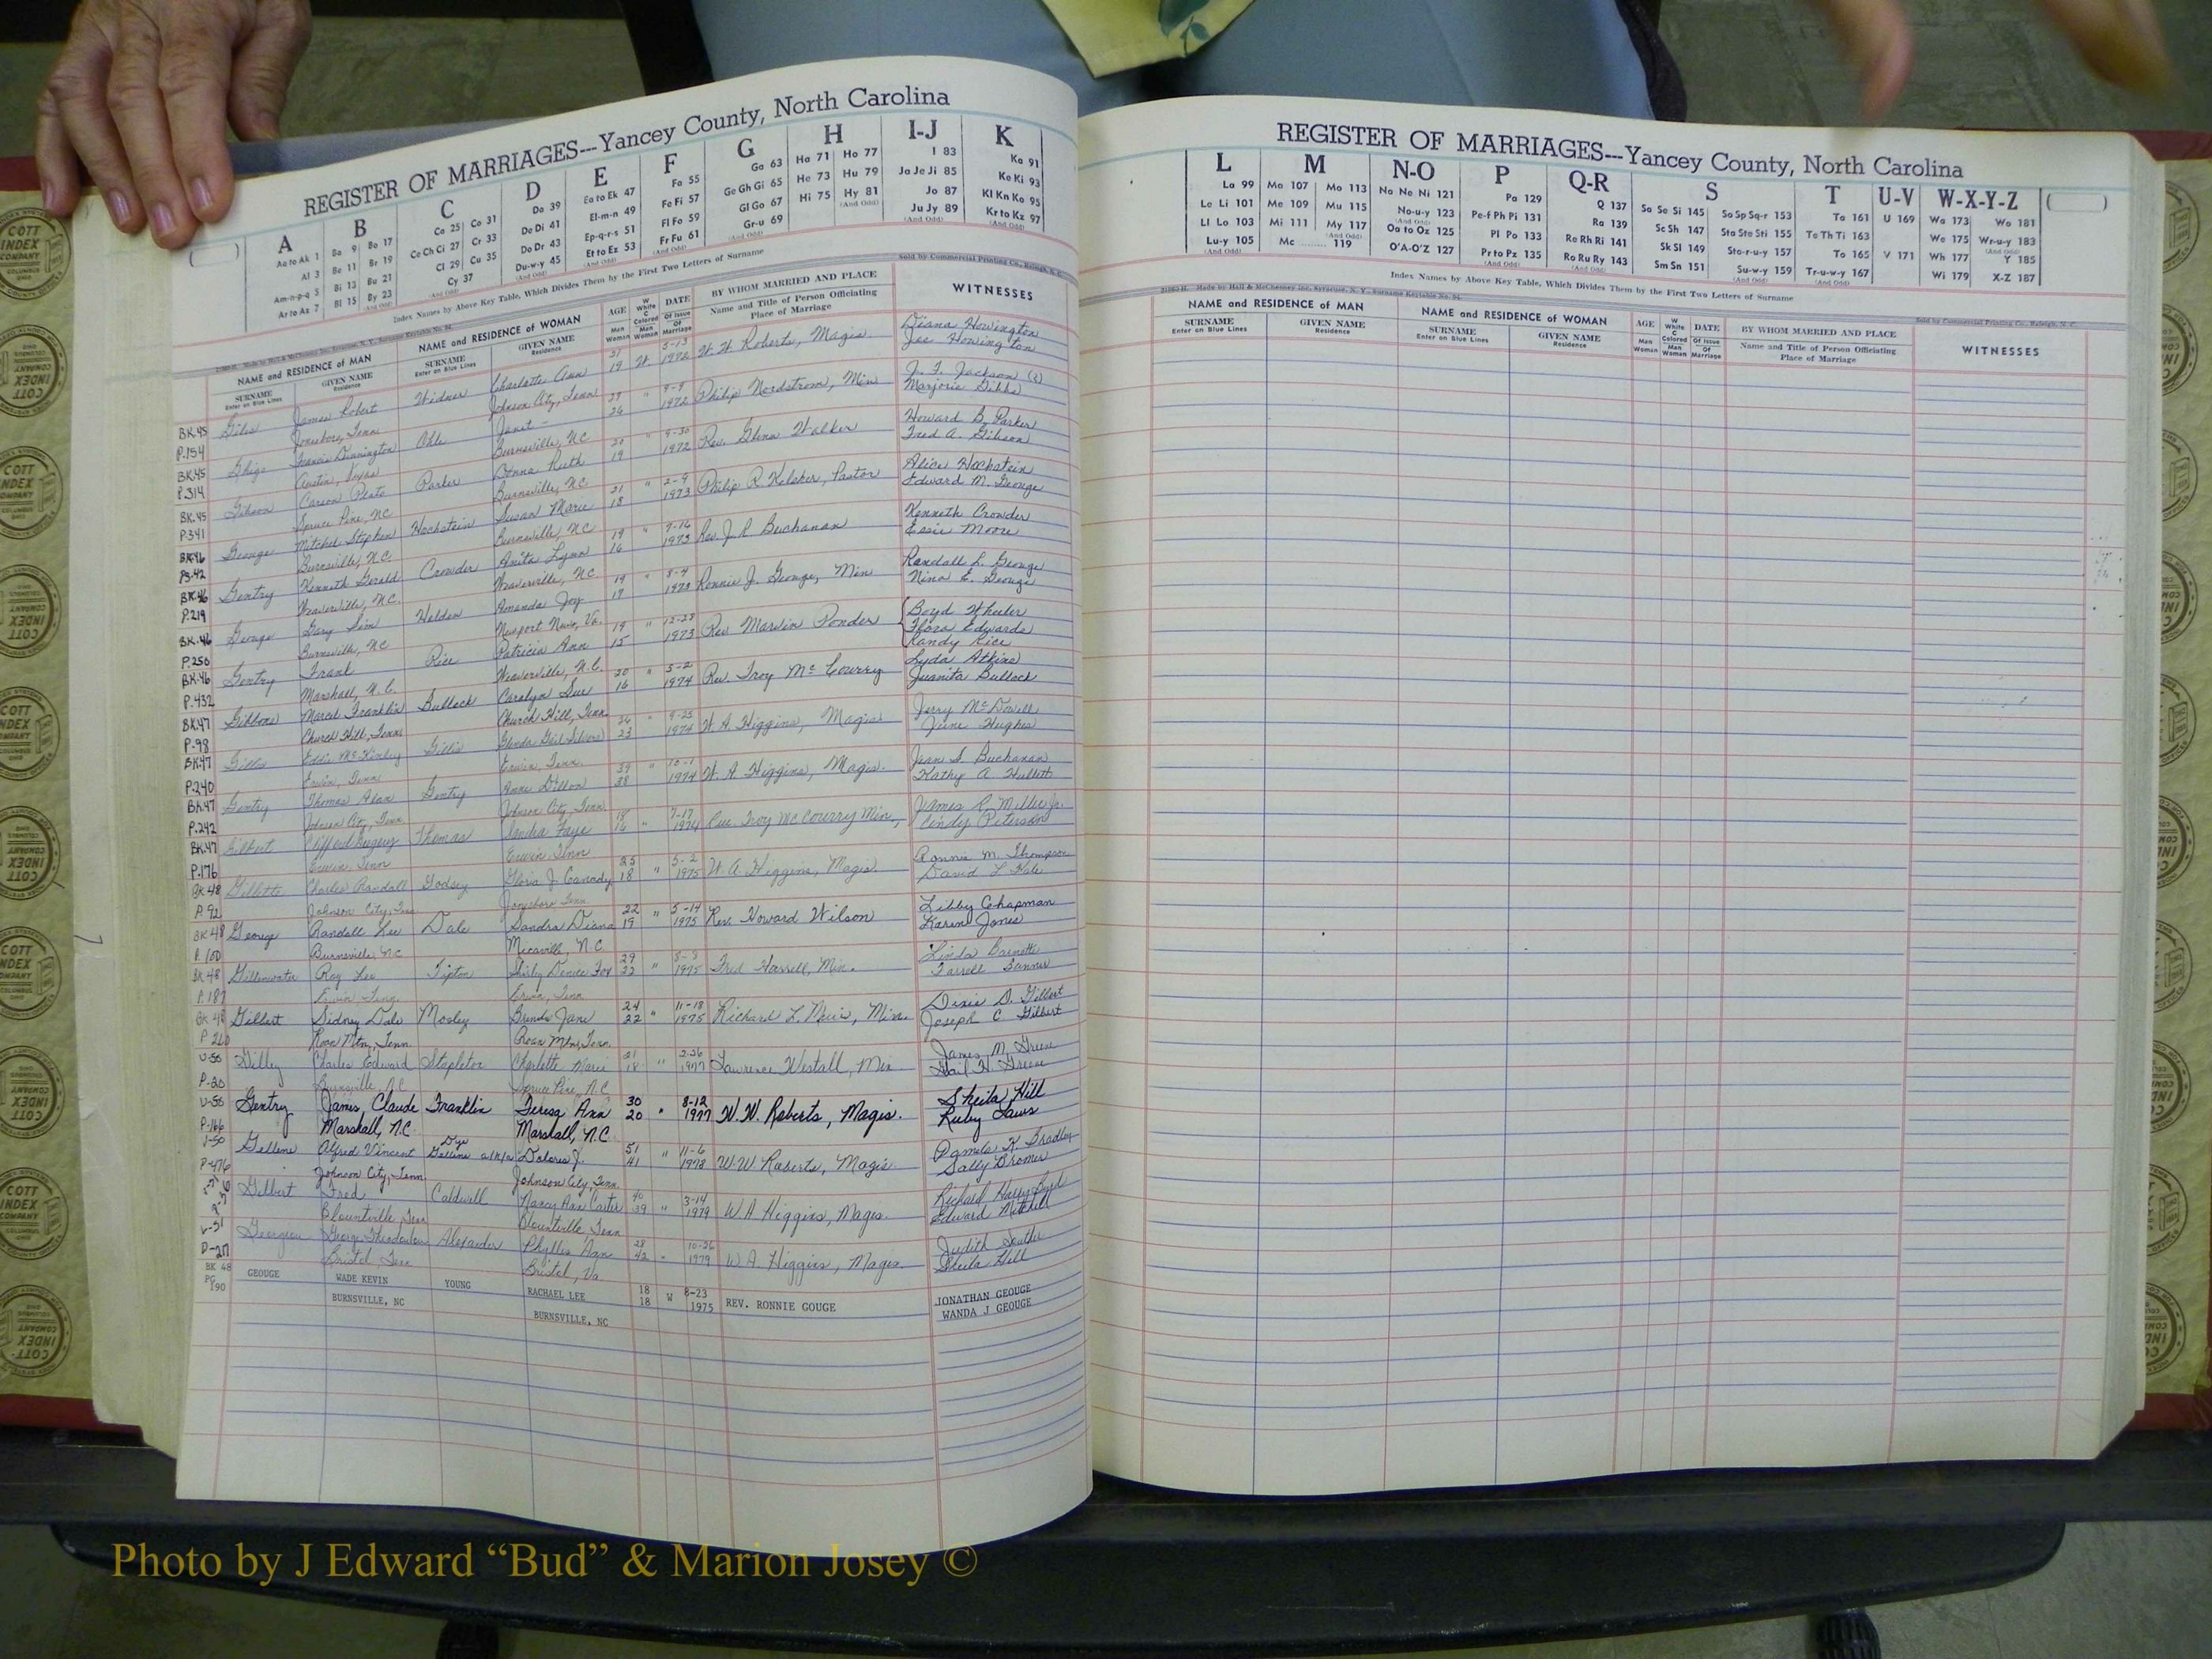 REGISTER OF MARRIAGES---Yancey County, North Carolina
A B C D E F G H I-J K
Aa to Ak 1 Ba 9 Bo 17 Ca 25 Co 31 Da 39 Ea to Ek 47 Fa 55 Ga 63 Ha 71 Ho 77 I 83 Ka 91
Al 3 Be 11 Br 19 Ce Ch Ci 27 Cr 33 De Di 41 El-m-n 49 Fe Fi 57 Ge Gh Gi 65 He 73 Hu 79 Ja Je Ji 85 Ke Ki 93
Am-n-p-q 5 Bi 13 Bu 21 Cl 29 Cu 35 Do Dr 43 Ep-q-r-s 51 Fl Fo 59 Gl Go 67 Hi 75 Hy 81 Jo 87 Kl Kn Ko 95
Ar to Az 7 Bl 15 By 23 Cy 37 Du-w-y 45 Et to Ez 53 Fr Fu 61 Gr-u 69 (And Odd) Ju Jy 89 Kr to Kz 97
Index Names by Above Key Table, Which Divides Them by the First Two Letters of Surname
Sold by Commercial Printing Co., Raleigh, N. C.
NAME and RESIDENCE of MAN NAME and RESIDENCE of WOMAN AGE W White C Colored DATE BY WHOM MARRIED AND PLACE WITNESSES
SURNAME GIVEN NAME SURNAME GIVEN NAME Man Man Of Issue Name and Title of Person Officiating
Enter on Blue Lines Residence Enter on Blue Lines Residence Woman Woman Of Marriage Place of Marriage
BK.45 Giles James Robert Widner Charlotte Ann 21 W. 5-13 W. W. Roberts, Magis. Diana Howington
P.154 Jonesboro, Tenn Johnson City, Tenn 19 1972 Joe Howington
BK.45 Ghigo Francis Dunnington Ohle Janet - 29 " 9-9 Philip Nordstrom, Min J. F. Jackson (?)
P.314 Austin, Texas Burnsville, NC 26 1972 Marjorie Gibbs
BK.45 Gibson Carson Plato Parker Donna Ruth 20 " 9-30 Rev. Glenn Walker Howard B. Parker
P.341 Spruce Pine, NC Burnsville, NC 19 1972 Fred A. Gibson
BK.46 George Mitchel Stephen Hochstein Susan Marie 21 " 2-9 Philip R. Keleher, Pastor Alice Hochstein
PG.42 Burnsville, N.C. Burnsville, NC 18 1973 Edward M. George
BK.46 Gentry Kenneth Gerald Crowder Anita Lynn 19 " 7-16 Rev. J. R. Buchanan Kenneth Crowder
P.219 Weaverville, N.C. Weaverville, NC 16 1973 Essie Moore
BK.46 George Gary Sim Weldon Amanda Joy 19 " 8-4 Ronnie J. George, Min Randall L. George
P.250 Burnsville, NC Newport News, Va. 17 1973 Nina E. George
BK.46 Gentry Frank Rice Patricia Ann 19 " 12-23 Rev Marvin Ponder Boyd Wheeler
P.432 Marshall, N.C. Weaverville, N.C. 15 1973 Flora Edwards
Randy Rice
BK.47 Gibbons Marcel Franklin Bullock Carolyn Sue 20 " 5-2 Rev. Troy McCourry Lyda Atkins
P.98 Church Hill, Tenn Church Hill, Tenn. 16 1974 Juanita Bullock
BK.47 Gillis Eddie McKinley Gillis Glenda Gail Silvers 26 " 9-25 W. A. Higgins, Magis Jerry McDowell
P.240 Erwin, Tenn Erwin, Tenn. 23 1974 June Hughes
BK.47 Gentry Thomas Alan Gentry Anne Dillon 39 " 10-1 W. A. Higgins, Magis. Jean S. Buchanan
P.242 Johnson City, Tenn Johnson City, Tenn. 38 1974 Kathy A.
BK.47 Gilbert Clifford Thomas Sandra Faye 18 " 7-17 Rev. Troy McCourry Min, James R. Miller Jr.
P.176 Erwin Tenn Erwin Tenn 16 1974 Cindy Peterson
BK 48 Gillette Charles Randall Godsey Gloria J. Canady 25 " 5-2 W. A. Higgins, Magis. Ronnie M. Thompson
P. 92 Johnson City, Tenn Jonesboro Tenn 18 1975 David L Hale
BK 48 George Randall Lee Dale Sandra Diana 22 " 5-14 Rev. Howard Wilson Libby Chapman
P. 100 Burnsville, NC Micaville, N.C. 19 1975 Karen Jones
BK 48 Gillenwater Roy Lee Tipton Shirly Denice Fox 29 " 8-8 Fred Harrell, Min. Linda Barnett
P. 187 Erwin Tenn. Erwin, Tenn 22 1975 Farrell Tanner
BK 48 Gilbert Sidney Dale Mosley Brenda Jane 24 " 11-18 Richard L. Muir, Min. Dixie D. Gilbert
P 260 Roan Mtn, Tenn. Roan Mtn, Tenn. 22 1975 Joseph C. Gilbert
V-50 Gilley Charles Edward Stapleton Charlotte Marie 21 " 2-26 Lawrence Westall, Min James M. Greene
P-20 Burnsville, N.C Spruce Pine, N.C. 18 1977 Gail H. Greene
V-50 Gentry James Claude Franklin Teresa Ann 30 " 8-12 W.W. Roberts, Magis. Sheila Hill
P-166 Marshall, N.C. Marshall, N.C. 20 1977 Ruby Laws
V-50 Gellene Alfred Vincent Dye Gellene a/k/a Dolores J. 51 " 11-6 W.W. Roberts, Magis. Pamela K Bradley
P-476 Johnson City, Tenn. Johnson City, Tenn. 41 1978 Sally Bromer
Gilbert Fred Caldwell Nancy Ann Carter 40 " 3-14 W A Higgins, Mages. Richard Harry Byrd
Blountville, Tenn Blountville, Tenn 39 1979 Edward Mitchell
V-51 George Alexander Phyllis Ann 28 " 10-26 W A. Higgins, Mages. Judith
P-217 Bristol Tenn Bristol, Va. 42 1979 Sheila Hill
BK 48 GEOUGE WADE KEVIN YOUNG RACHAEL LEE 18 W 8-23 REV. RONNIE GOUGE JONATHAN GEOUGE
PG 190 BURNSVILLE, NC BURNSVILLE, NC 18 1975 WANDA J GEOUGE
REGISTER OF MARRIAGES---Yancey County, North Carolina
L M N-O P Q-R S T U-V W-X-Y-Z
La 99 Ma 107 Mo 113 Na Ne Ni 121 Pa 129 Q 137 Sa Se Si 145 So Sp Sq-r 153 Ta 161 U 169 Wa 173 Wo 181
Le Li 101 Me 109 Mu 115 No-u-y 123 Pe-f Ph Pi 131 Ra 139 Sc Sh 147 Sta Ste Sti 155 Te Th Ti 163 We 175 Wr-u-y 183
Ll Lo 103 Mi 111 My 117 Oa to Oz 125 Pl Po 133 Re Rh Ri 141 Sk Sl 149 Sto-r-u-y 157 To 165 V 171 Wh 177 Y 185
Lu-y 105 Mc 119 O'A-O'Z 127 Pr to Pz 135 Ro Ru Ry 143 Sm Sn 151 Su-w-y 159 Tr-u-w-y 167 Wi 179 X-Z 187
Index Names by Above Key Table, Which Divides Them by the First Two Letters of Surname
Made by Hall & McChesney Inc., Syracuse, N. Y., Surname Keytable No. 94.
Sold by Commercial Printing Co., Raleigh, N. C.
NAME and RESIDENCE of MAN NAME and RESIDENCE of WOMAN AGE W White C Colored DATE BY WHOM MARRIED AND PLACE WITNESSES
SURNAME GIVEN NAME SURNAME GIVEN NAME Man Man Of Issue Name and Title of Person Officiating
Enter on Blue Lines Residence Enter on Blue Lines Residence Woman Woman Of Marriage Place of Marriage
COTT INDEX COMPANY COLUMBUS OHIO
Photo by J Edward “Bud” & Marion Josey ©